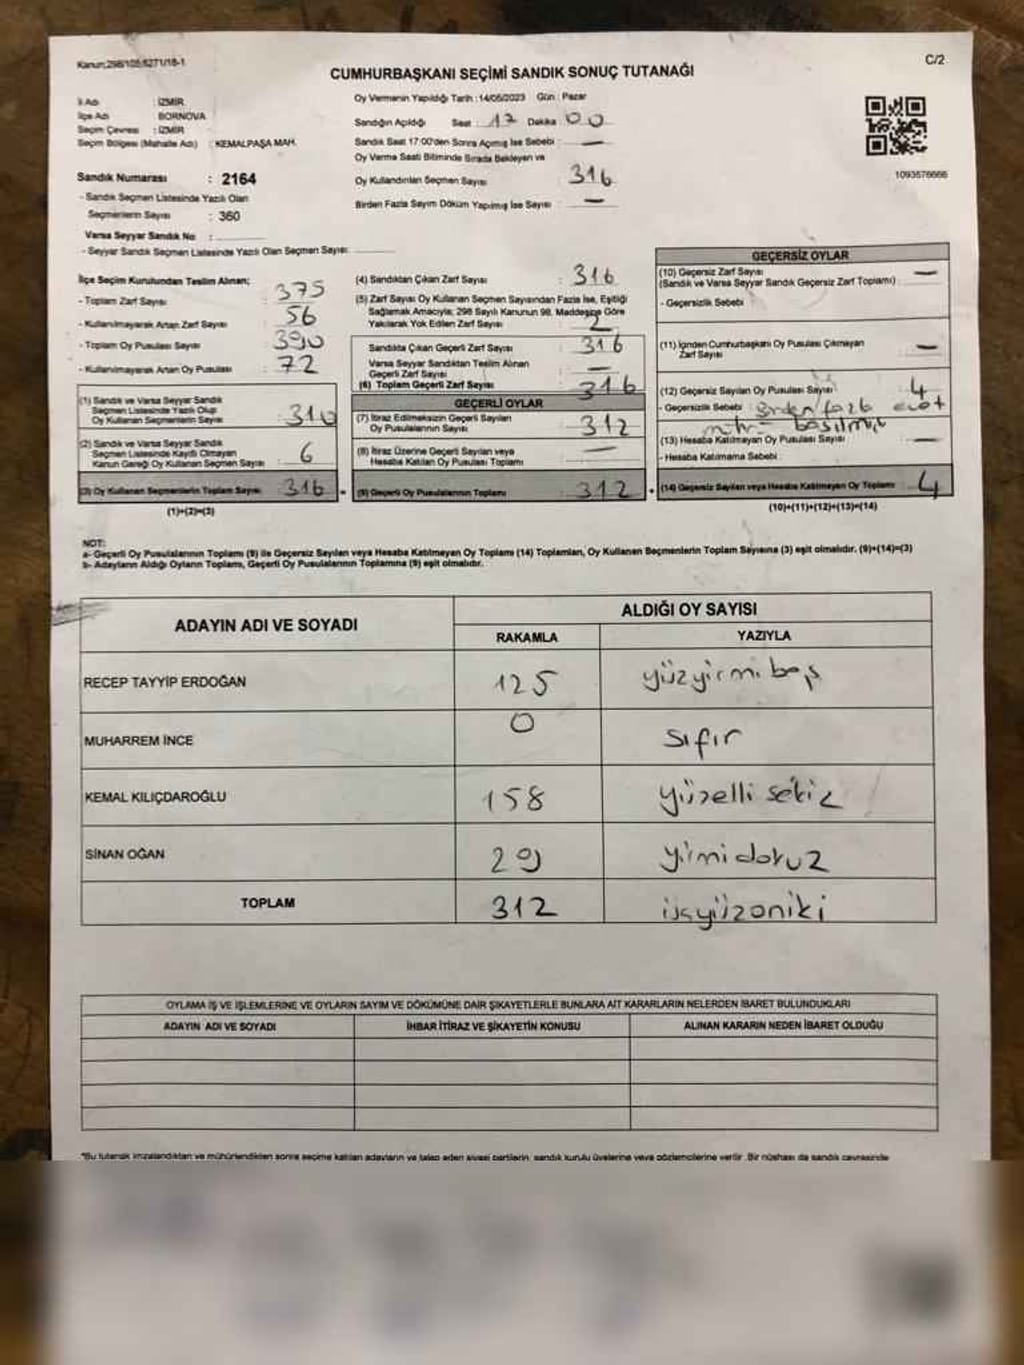 Kanun;298/105;6271/18-1
C/2
CUMHURBAŞKANI SEÇİMİ SANDIK SONUÇ TUTANAĞI
İl Adı : İZMİR
İlçe Adı : BORNOVA
Seçim Çevresi : İZMİR
Seçim Bölgesi (Mahalle Adı) : KEMALPAŞA MAH.
Sandık Numarası : 2164
- Sandık Seçmen Listesinde Yazılı Olan
Seçmenlerin Sayısı : 360
Varsa Seyyar Sandık No :
- Seyyar Sandık Seçmen Listesinde Yazılı Olan Seçmen Sayısı:
Oy Vermenin Yapıldığı Tarih :14/05/2023 Gün : Pazar
Sandığın Açıldığı Saat : 17 Dakika 00
Sandık Saat 17:00'den Sonra Açılmış İse Sebebi : —
Oy Verme Saati Bitiminde Sırada Bekleyen ve
Oy Kullandırılan Seçmen Sayısı 316
Birden Fazla Sayım Döküm Yapılmış İse Sayısı : —
1093576666
İlçe Seçim Kurulundan Teslim Alınan;
- Toplam Zarf Sayısı : 375
- Kullanılmayarak Artan Zarf Sayısı : 56
- Toplam Oy Pusulası Sayısı : 390
- Kullanılmayarak Artan Oy Pusulası : 72
(1) Sandık ve Varsa Seyyar Sandık
Seçmen Listesinde Yazılı Olup
Oy Kullanan Seçmenlerin Sayısı : 310
(2) Sandık ve Varsa Seyyar Sandık
Seçmen Listesinde Kayıtlı Olmayan
Kanun Gereği Oy Kullanan Seçmen Sayısı : 6
(3) Oy Kullanan Seçmenlerin Toplam Sayısı : 316
(1)+(2)=(3)
(4) Sandıktan Çıkan Zarf Sayısı : 316
(5) Zarf Sayısı Oy Kullanan Seçmen Sayısından Fazla İse, Eşitliği
Sağlamak Amacıyla; 298 Sayılı Kanunun 98. Maddesine Göre
Yakılarak Yok Edilen Zarf Sayısı : 2
Sandıkta Çıkan Geçerli Zarf Sayısı : 316
Varsa Seyyar Sandıktan Teslim Alınan
Geçerli Zarf Sayısı : —
(6) Toplam Geçerli Zarf Sayısı : 316
GEÇERLİ OYLAR
(7) İtiraz Edilmeksizin Geçerli Sayılan
Oy Pusulalarının Sayısı : 312
(8) İtiraz Üzerine Geçerli Sayılan veya
Hesaba Katılan Oy Pusulası Toplamı : —
(9) Geçerli Oy Pusulalarının Toplamı : 312
GEÇERSİZ OYLAR
(10) Geçersiz Zarf Sayısı
(Sandık ve Varsa Seyyar Sandık Geçersiz Zarf Toplamı) : —
- Geçersizlik Sebebi :
(11) İçinden Cumhurbaşkanı Oy Pusulası Çıkmayan
Zarf Sayısı : —
(12) Geçersiz Sayılan Oy Pusulası Sayısı : 4
- Geçersizlik Sebebi : Birden fazla evet
mührü basılmış
(13) Hesaba Katılmayan Oy Pusulası Sayısı : —
- Hesaba Katılmama Sebebi :
(14) Geçersiz Sayılan veya Hesaba Katılmayan Oy Toplamı : 4
(10)+(11)+(12)+(13)=(14)
NOT:
a- Geçerli Oy Pusulalarının Toplamı (9) ile Geçersiz Sayılan veya Hesaba Katılmayan Oy Toplamı (14) Toplamları, Oy Kullanan Seçmenlerin Toplam Sayısına (3) eşit olmalıdır. (9)+(14)=(3)
b- Adayların Aldığı Oyların Toplamı, Geçerli Oy Pusulalarının Toplamına (9) eşit olmalıdır.
ADAYIN ADI VE SOYADI
ALDIĞI OY SAYISI
RAKAMLA YAZIYLA
RECEP TAYYİP ERDOĞAN 125 yüzyirmibeş
MUHARREM İNCE 0 sıfır
KEMAL KILIÇDAROĞLU 158 yüzellisekiz
SİNAN OĞAN 29 yirmidokuz
TOPLAM 312 üçyüzoniki
OYLAMA İŞ VE İŞLEMLERİNE VE OYLARIN SAYIM VE DÖKÜMÜNE DAİR ŞİKAYETLERLE BUNLARA AİT KARARLARIN NELERDEN İBARET BULUNDUKLARI
ADAYIN ADI VE SOYADI İHBAR İTİRAZ VE ŞİKAYETİN KONUSU ALINAN KARARIN NEDEN İBARET OLDUĞU
"Bu tutanak imzalandıktan ve mühürlendikten sonra seçime katılan adayların ve talep eden siyasi partilerin, sandık kurulu üyelerine veya gözlemcilerine verilir. Bir nüshası da sandık çevresinde